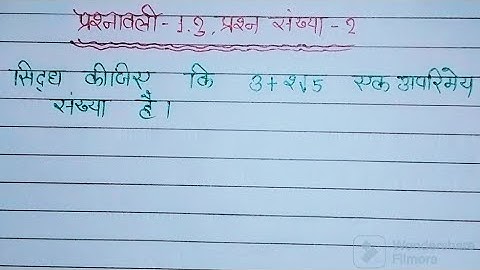 प्रश्नावली - 1.2, प्रश्न संख्या - २
सिद्ध कीजिए कि 3+2√5 एक अपरिमेय
संख्या है।
Wondershare
Filmora